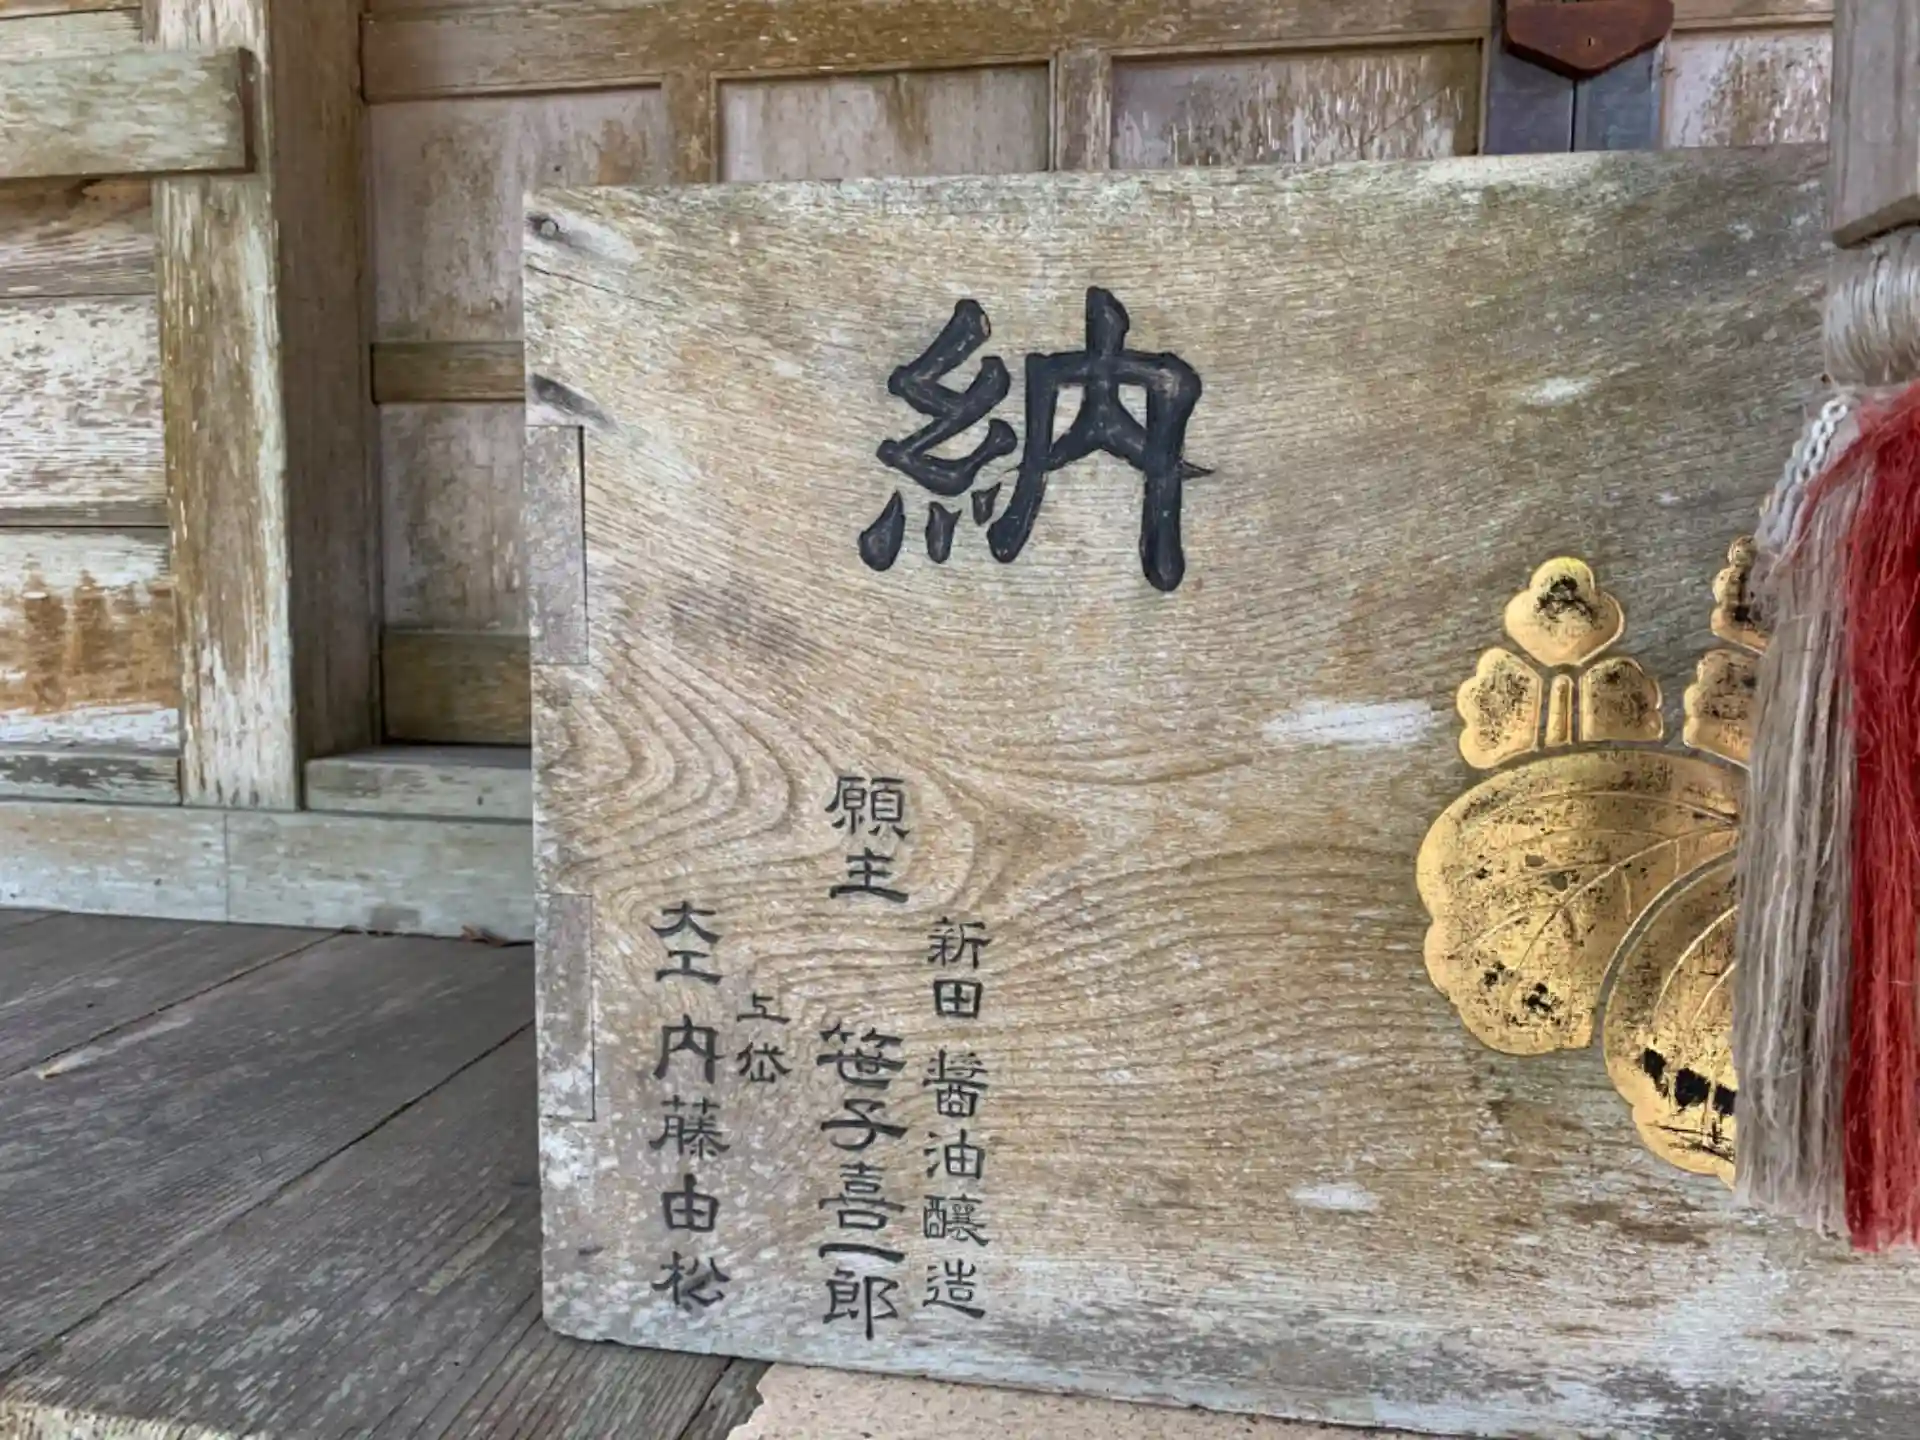 納
新田 醤油醸造
願主 笹子喜一郎
上岱
大工 内藤由松